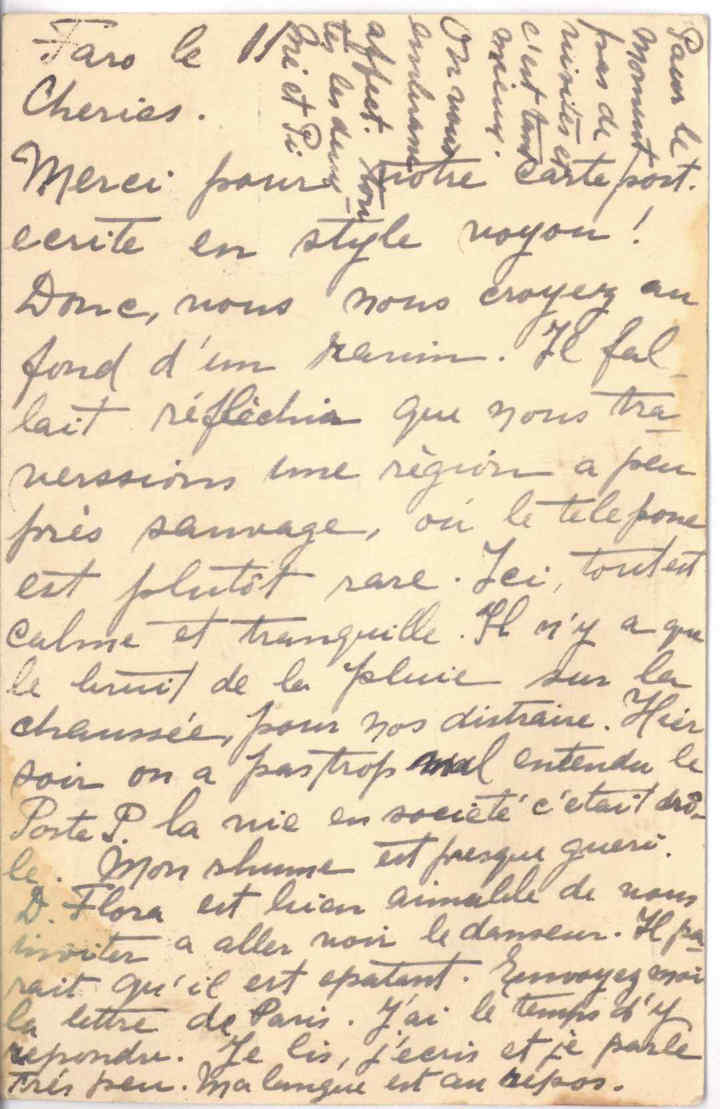 Faro le 11
Cheries.
Merci pour votre carte post.
ecrite en style voyou!
Donc, vous nous croyez au
fond d'un ravin. Il fal-
lait réfléchir que nous tra-
verssions une région a peu
près sauvage, où le telefone
est plutôt rare. Ici, tout est
calme et tranquille. Il n'y a que
le bruit de la pluie sur la
chaussée, pour nos distraire. Hier
soir on a pas trop mal entendu le
Poste P. la vie en societé c'était drô-
le. Mon rhume est presque gueri.
D. Flora est bien aimable de nous
inviter a aller voir le danseur. Il pa-
rait qu'il est epatant. Envoyez moi
la lettre de Paris. J'ai le temps d'y
repondre. Je lis, j'ecris et je parle
trés peu. Ma langue est au répos.
Pour le
moment
pas de
visites et
c'est tant
mieux.
On vous
embrasse
affect. tou-
tes les deux
Mé et Pi